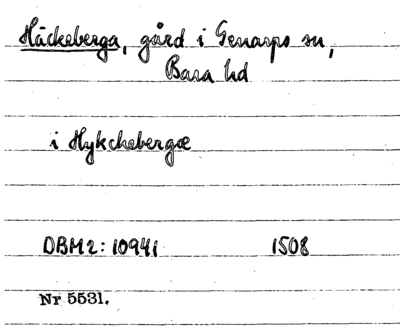 Häckeberga, gård i Genarps sn,
Bara hd
i Hykchebergæ
DBM2: 10941 1508
Nr 5531.